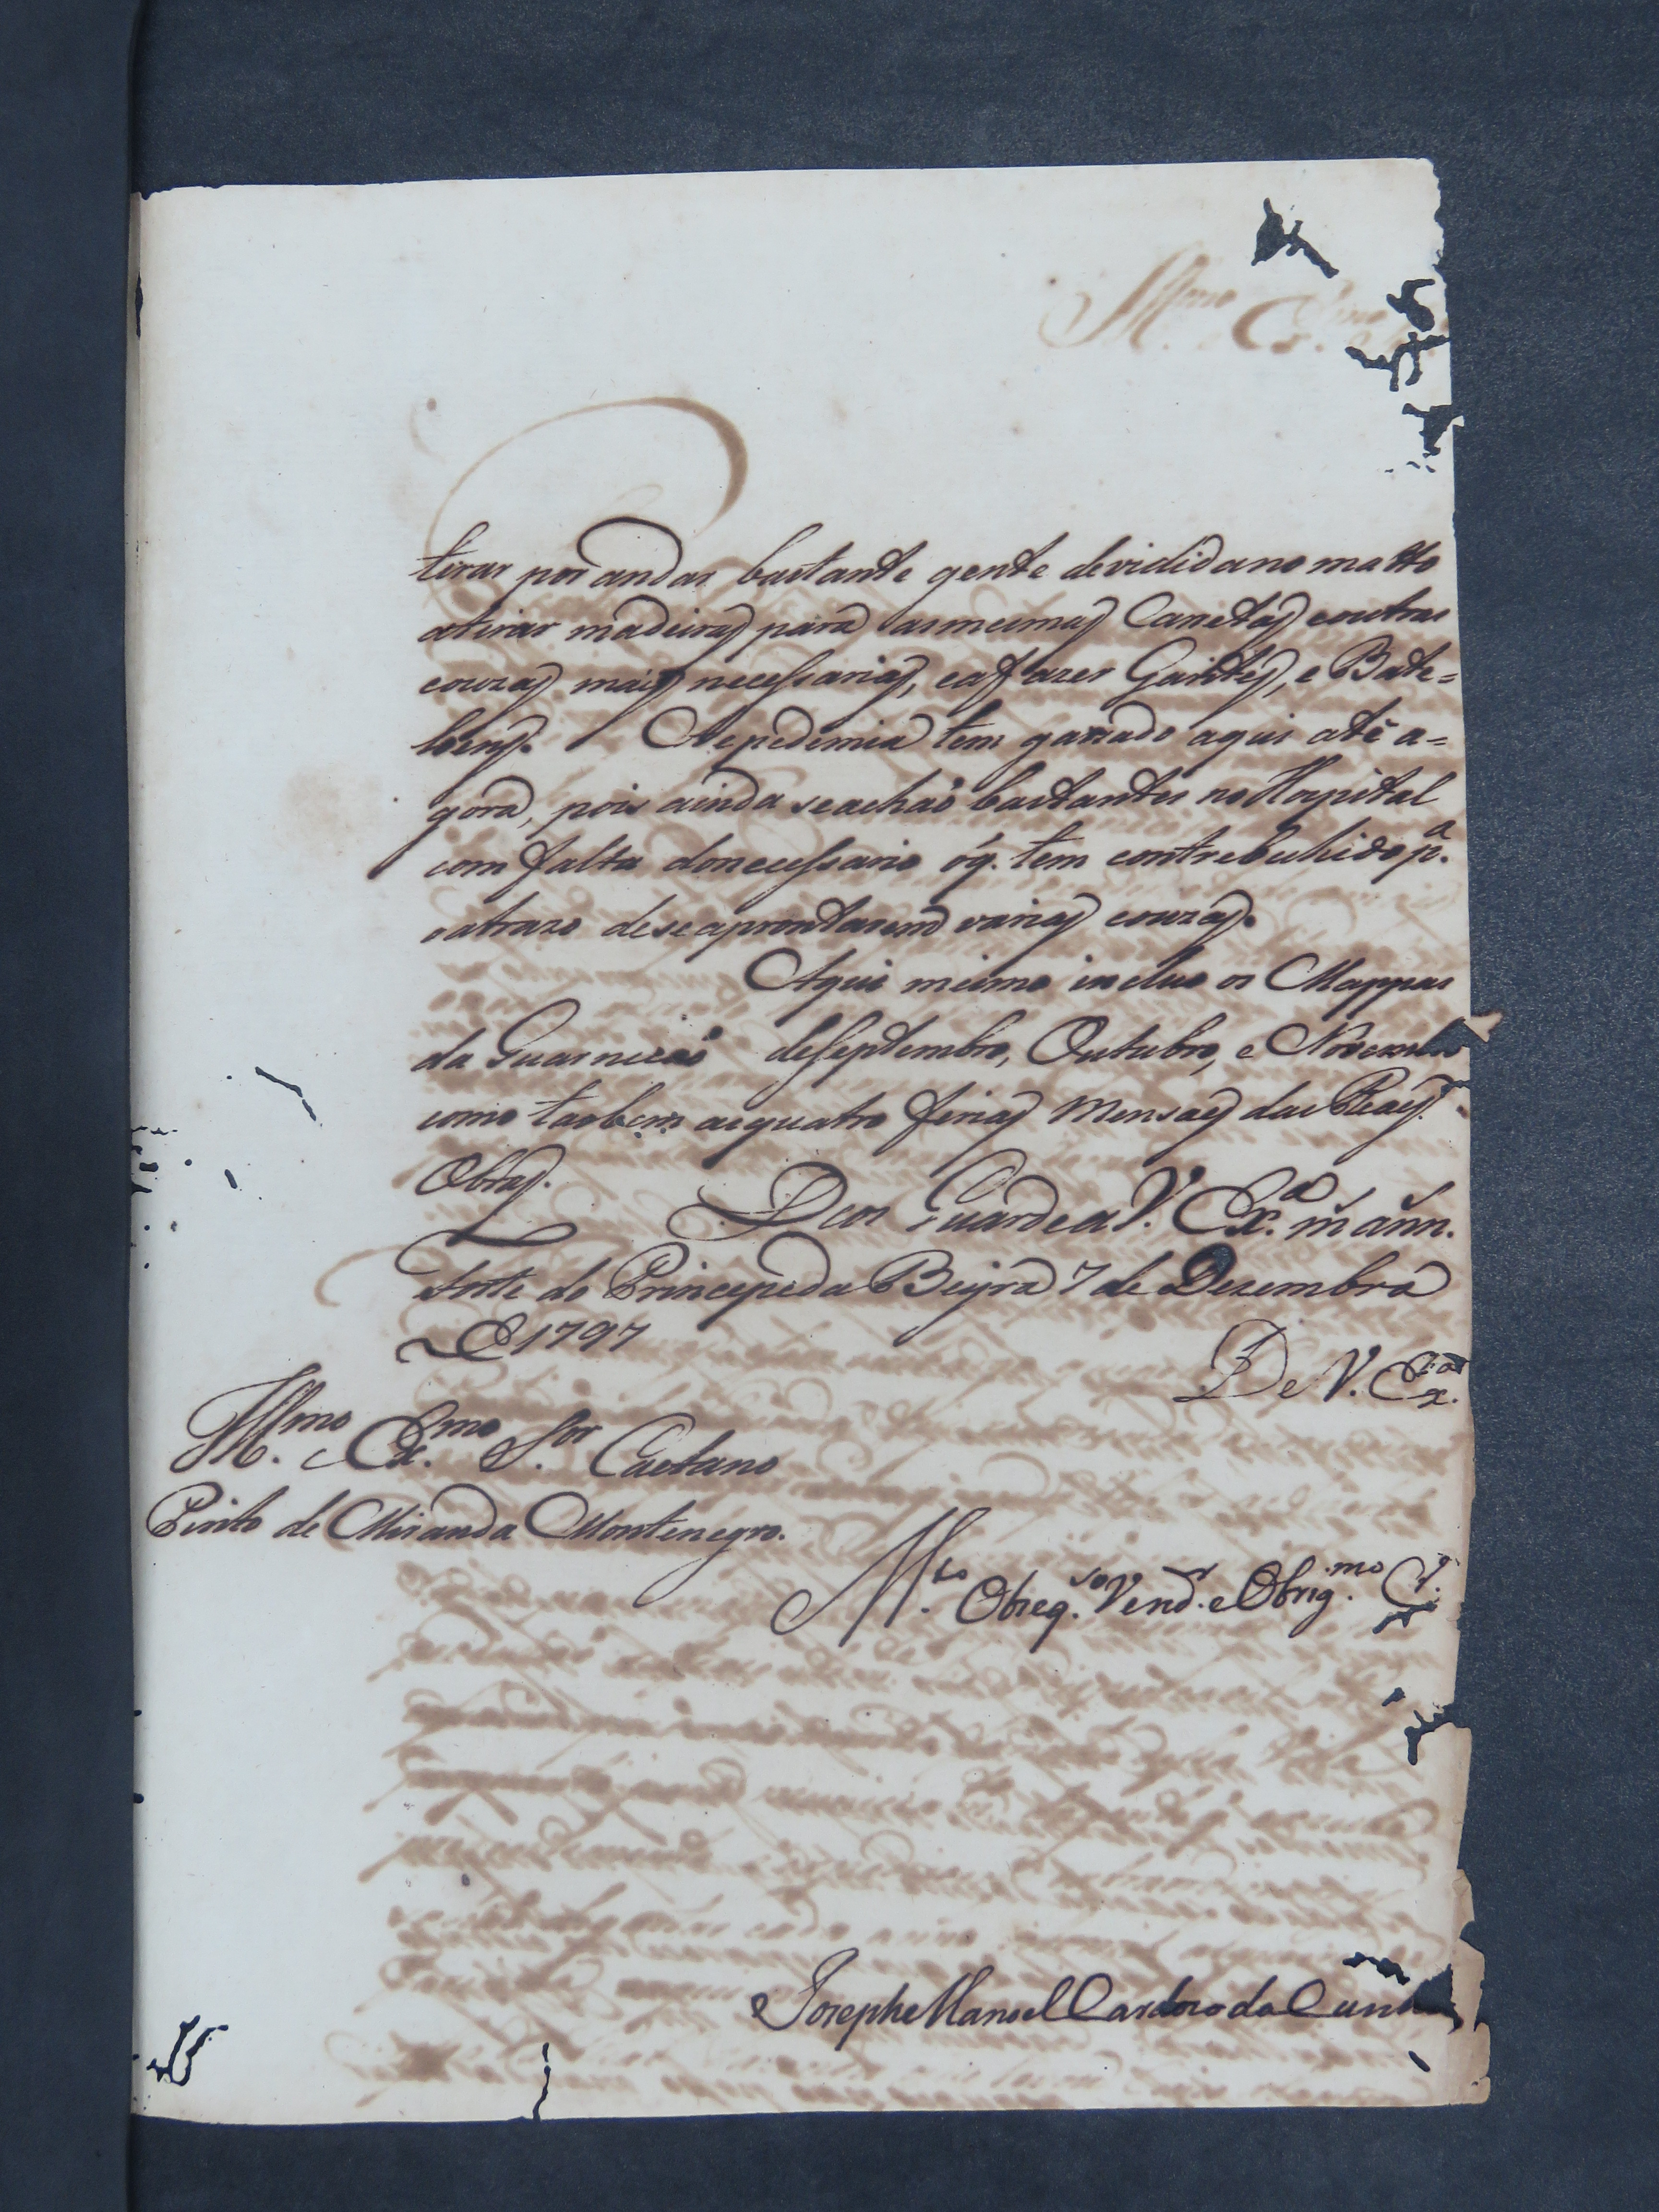 tirar por andar bastante gente devidida no matto
atirar madeiras para as mesmas Canetas e outras
couzas mais necessarias, e a fazer Garités, e Bate=
loens. A epedimia tem grassado aqui até a=
gora, pois ainda se achaõ bastantes no Hospital
com falta do necessario óq. tem contrebuhido p.ª
o atrazo de se aprontarem varias couzas.
Aqui mesmo incluo os Mappas
da Guarniçaõ de Septembro, Outubro, e Novembro
como taobem as quatro ferias Mensaes das Reaes
Obras. Deos Guarde a V. Ex.ª m añn.
Forte do Principe da Beyra 7 de Dezembro
de 1797
De V. Ex.ª
Ill.mo e Ex.mo S.or Caetano
Pinto de Miranda Montenegro.
M.to Obzeq.so Vend.r e Obrig.mo C.
Joseph Manoel Cardozo da Cunh